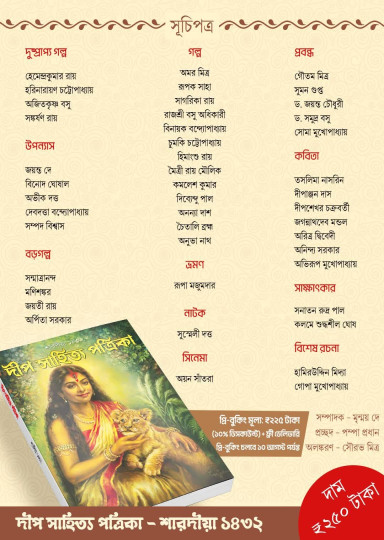 সূচিপত্র
দুষ্প্রাপ্য গল্প
হেমেন্দ্রকুমার রায়
হরিনারায়ণ চট্টোপাধ্যায়
অজিতকৃষ্ণ বসু
সঙ্কর্ষণ রায়
উপন্যাস
জয়ন্ত দে
বিনোদ ঘোষাল
অভীক দত্ত
দেবদত্তা বন্দ্যোপাধ্যায়
সম্পদ বিশ্বাস
বড়গল্প
সন্মাত্রানন্দ
মণিশঙ্কর
জয়তী রায়
অর্পিতা সরকার
গল্প
অমর মিত্র
রূপক সাহা
সাগরিকা রায়
রাজশ্রী বসু অধিকারী
বিনায়ক বন্দ্যোপাধ্যায়
চুমকি চট্টোপাধ্যায়
হিমাংশু রায়
মৈত্রী রায় মৌলিক
কমলেশ কুমার
দিব্যেন্দু পাল
অনন্যা দাশ
চৈতালি ব্রহ্ম
অনুভা নাথ
ভ্রমণ
রূপা মজুমদার
নাটক
সুস্মেলী দত্ত
সিনেমা
অয়ন সাঁতরা
প্রবন্ধ
গৌতম মিত্র
সুমন গুপ্ত
ড. জয়ন্ত চৌধুরী
ড. সমুদ্র বসু
সোমা মুখোপাধ্যায়
কবিতা
তসলিমা নাসরিন
দীপাঞ্জন দাস
দীপশেখর চক্রবর্তী
জগন্নাথদেব মন্ডল
অরিত্র দ্বিবেদী
অনিন্দ্য সরকার
অভিরূপ মুখোপাধ্যায়
সাক্ষাৎকার
সনাতন রুদ্র পাল
কলমে শুদ্ধশীল ঘোষ
বিশেষ রচনা
হামিরউদ্দিন মিদ্যা
গোপা মুখোপাধ্যায়
দীপ সাহিত্য পত্রিকা
প্রি-বুকিং মূল্য: ₹২২৫ টাকা
(১০% ডিসকাউন্ট) + ফ্রী ডেলিভারি
প্রি-বুকিং চলবে ১০ আগস্ট পর্যন্ত
সম্পাদক - মৃন্ময় দে
প্রচ্ছদ - পম্পা প্রধান
অলঙ্করণ - সৌরভ মিত্র
দাম
₹২৫০ টাকা
দীপ সাহিত্য পত্রিকা - শারদীয়া ১৪৩২